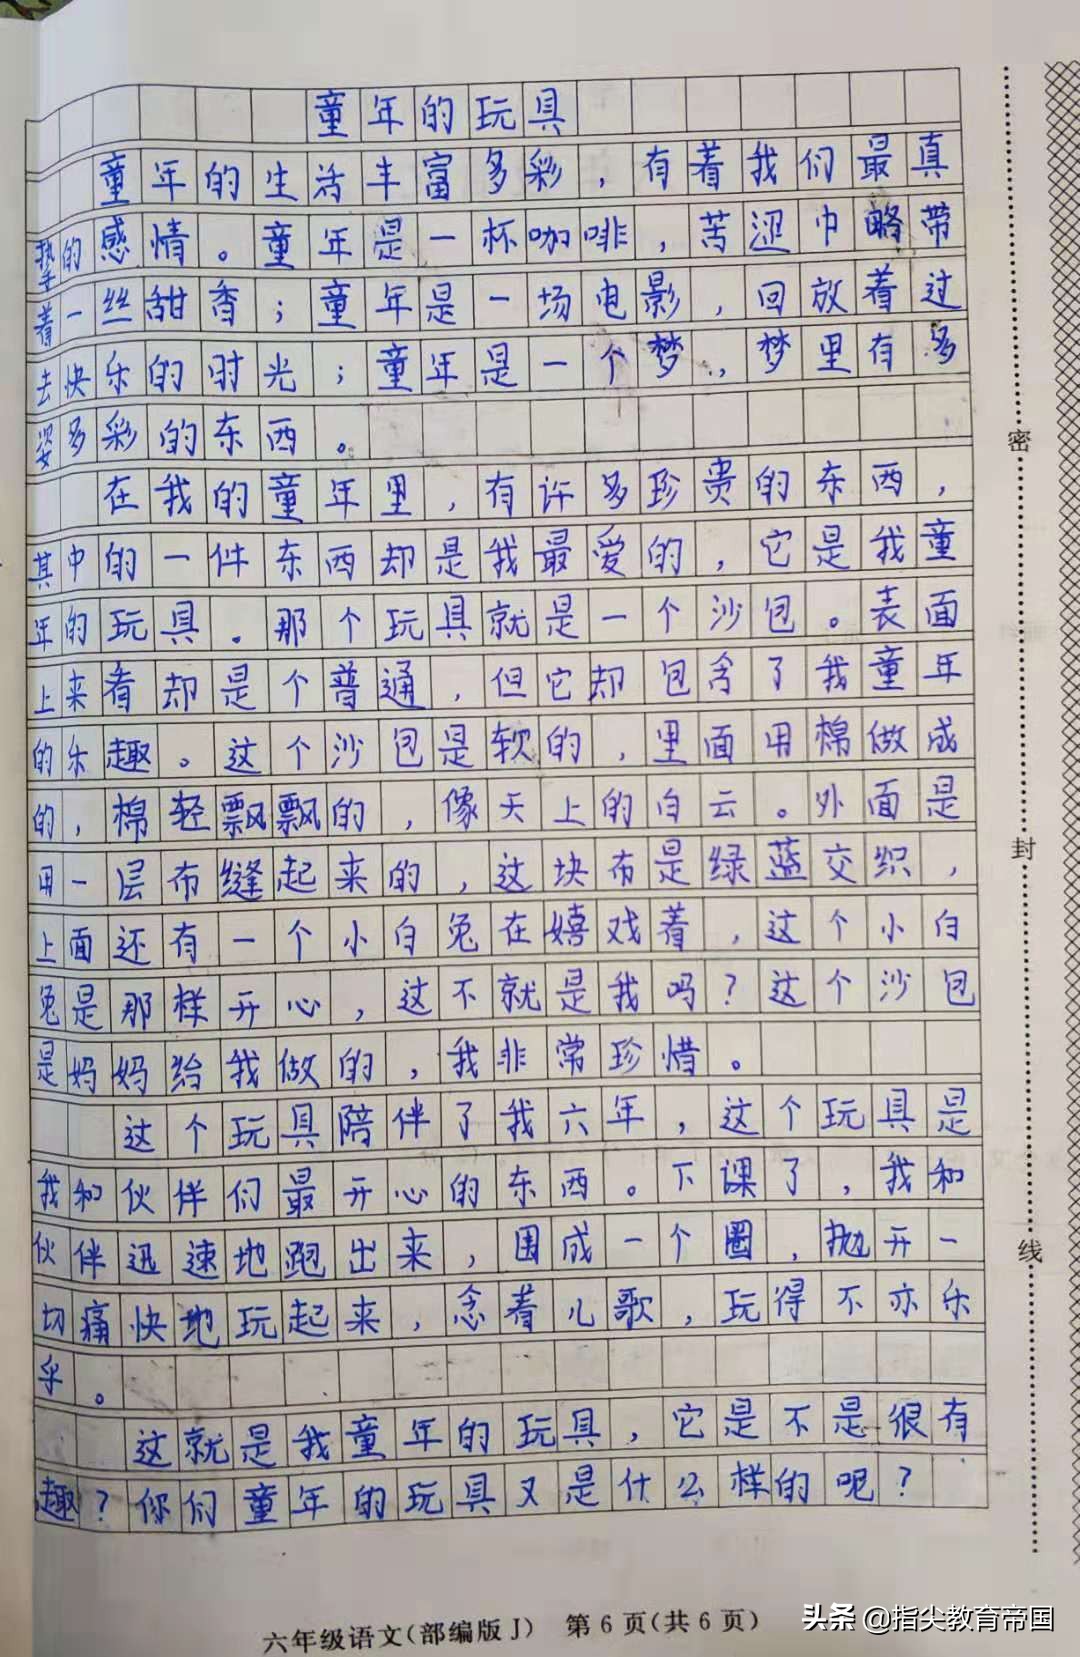 童年的玩具
童年的生活丰富多彩，有着我们最真
挚的感情。童年是一杯咖啡，苦涩中略带
着一丝甜香；童年是一场电影，回放着过
去快乐的时光；童年是一个梦，梦里有多
姿多彩的东西。
在我的童年里，有许多珍贵的东西，
其中的一件东西却是我最爱的，它是我童
年的玩具。那个玩具就是一个沙包。表面
上来看却是个普通，但它却包含了我童年
的乐趣。这个沙包是软的，里面用棉做成
的，棉轻飘飘的，像天上的白云。外面是
用一层布缝起来的，这块布是绿蓝交织，
上面还有一个小白兔在嬉戏着，这个小白
兔是那样开心，这不就是我吗？这个沙包
是妈妈给我做的，我非常珍惜。
这个玩具陪伴了我六年，这个玩具是
我和伙伴们最开心的东西。下课了，我和
伙伴迅速地跑出来，围成一个圈，抛开一
切痛快地玩起来，念着儿歌，玩得不亦乐
乎。
这就是我童年的玩具，它是不是很有
趣？你们童年的玩具又是什么样的呢？
密
封
线
六年级语文(部编版J) 第6页(共6页)
头条 @指尖教育帝国